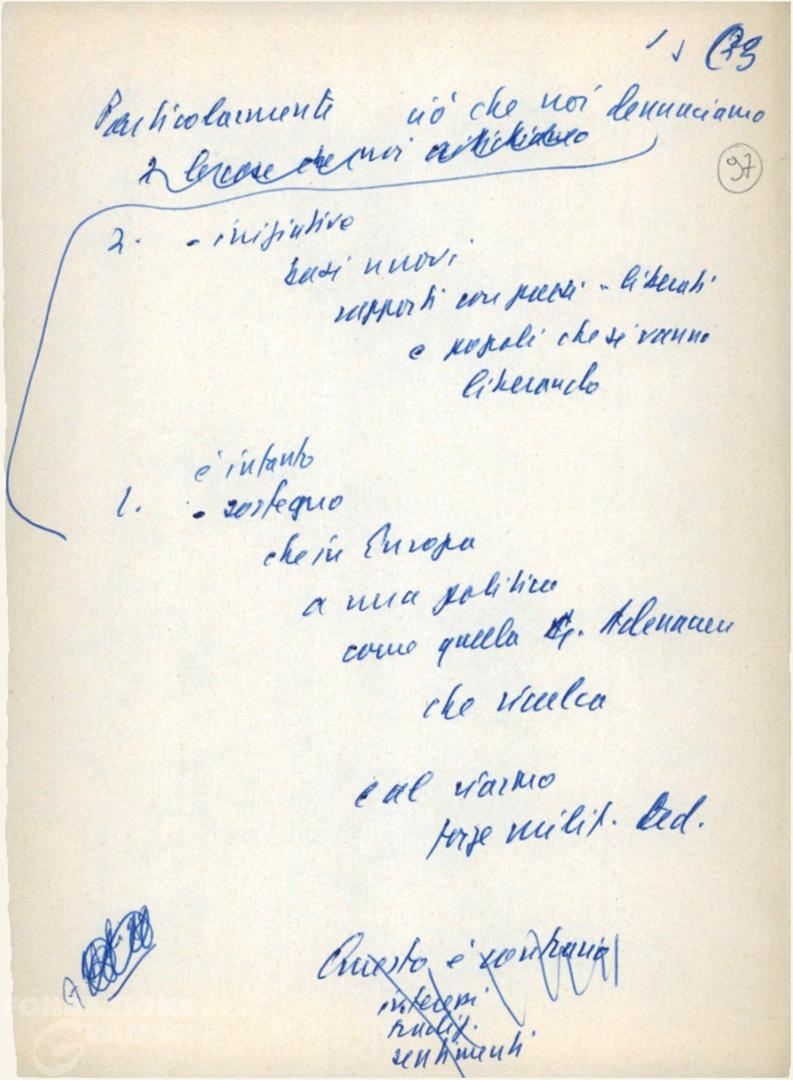 Particolarmente ciò che noi denunciamo
2 le cose che noi
97
2. - iniziative
basi nuovi
rapporti con paesi - liberati
e popoli che si vanno
liberando
è intanto
1. - sostegno
che in Europa
a una politica
come quella Adenauer
che ricalca
e al riarmo
forze milit. ted.
Questo è contrario
interessi
tradiz.
sentimenti
FONDAZIONE
GRAMSCI